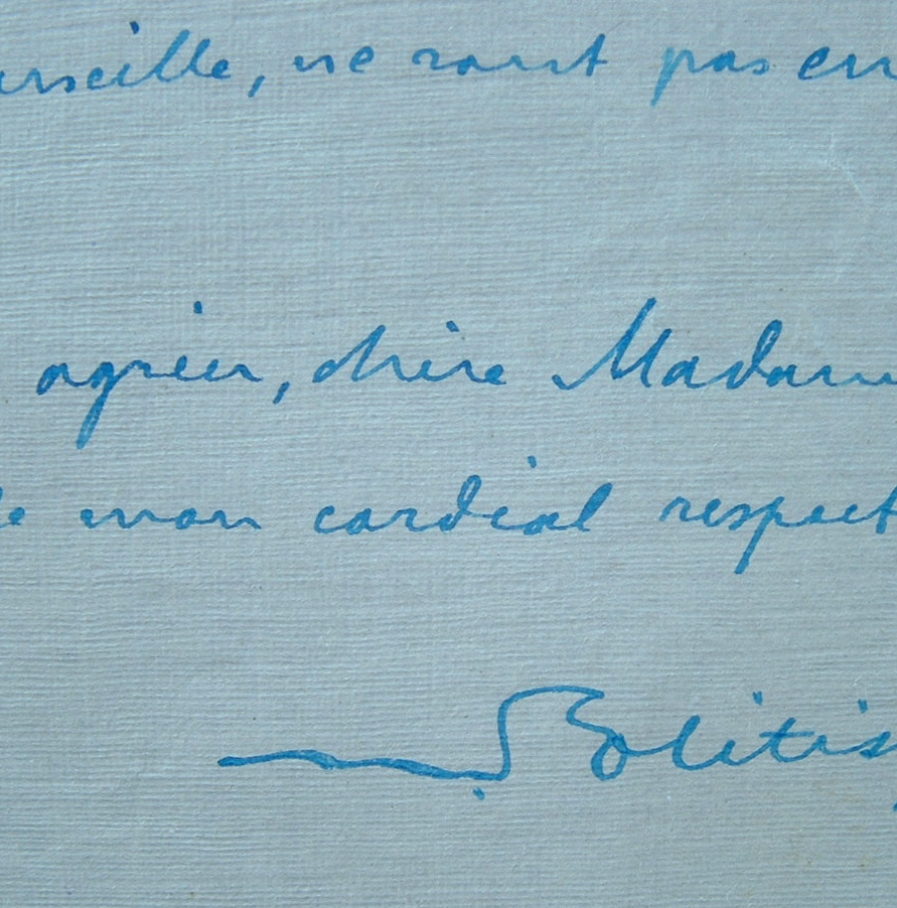 arseille, ne sont pas en
agréer, chère Madam
de mon cordial respect
Politis